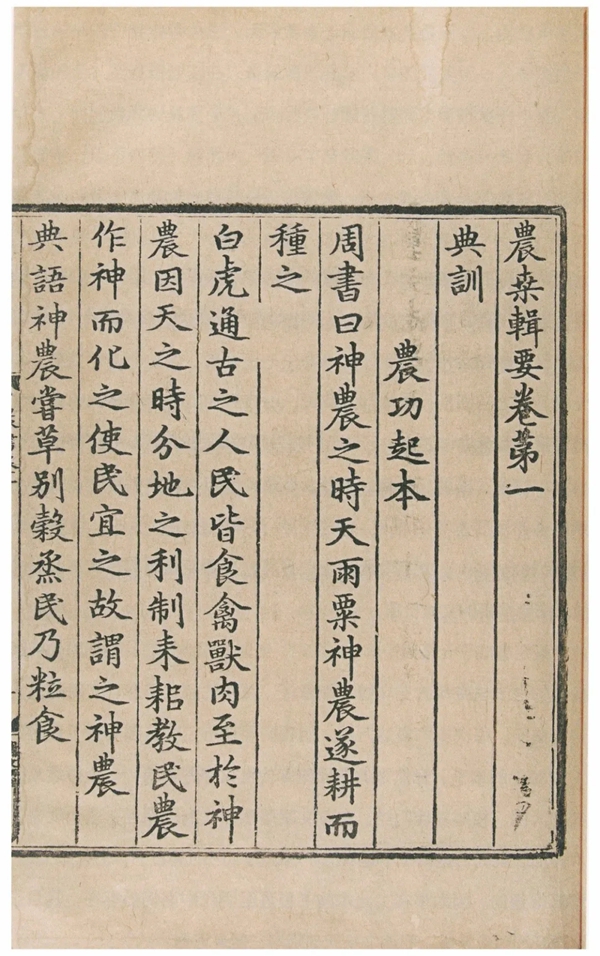 農桒輯要卷第一
典訓
農功起本
周書曰神農之時天雨粟神農遂耕而
種之
白虎通古之人民皆食禽獸肉至於神
農因天之時分地之利制耒耜教民農
作神而化之使民宜之故謂之神農
典語神農嘗草别穀烝民乃粒食